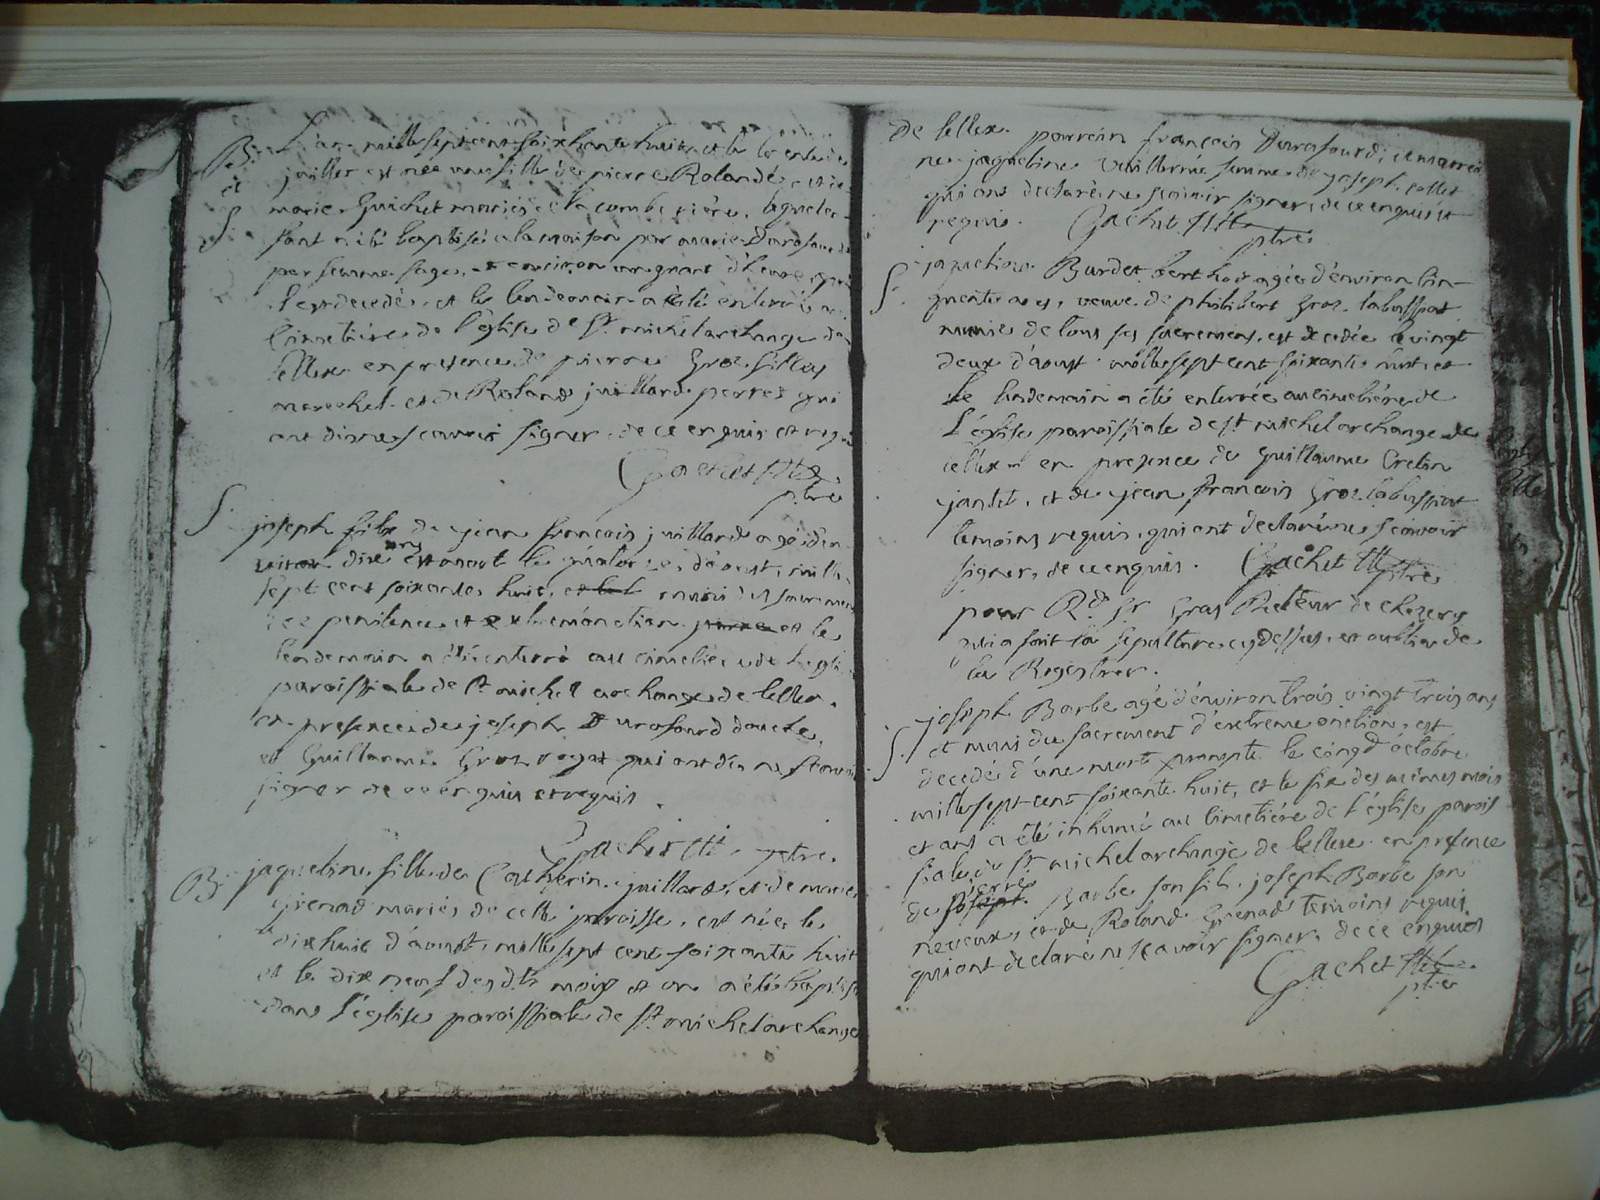 B. L'an mille sept cent soixhante huit et le trente de
et juillet est née une fille de pierre Rolande et de
S marie Guichet mariés de la combe, laquele
fant a été baptisée a la maison par marie Durafourd
par femme sage, et environ un quart d'heure
est decedé, et le lendemain a été enterré au
Cimetière de l'église de St michel archange de
lellex en presence de pierre Groz fillex
marechet et de Roland juilland perret qui
ont dis ne scavoir signer de ce enquis et requis
Gachet ptre
S. joseph fils de jean françois juilland agé d'en
viron dix ans est mort le quatorze d'aoust, mille
sept cent soixante huit, muni des sacrements
de penitence et extremonction et le
lendemain a été enterré au cimetiere de l'eglise
paroissiale de St michel archange de lellex.
en presence de joseph Durafourd douche,
et Guillaume Groz rogat qui ont dis ne scavoir
signer de ce enquis et requis.
Gachet ptre.
B. jaqueline fille de Catherin juilland, et de marie
Grenad mariés de cette paroisse, est née le
dix huit d'aoust, mille sept cent soixante huit
et le dix neuf des dts mois et an a été baptisée
dans l'église paroissiale de St michel archange
de lellex. parrein françois Durafourd, et marrei
ne jaqueline Vuillermé femme de joseph collet
qui ont declaré ne scavoir signer, de ce enquis et
requis. Gachet ptre
S. jaqueline Burdet berthoi agée d'environ cin-
quante ans, veuve de philibert Groz labuissiat
munie de tous ses sacrements, est decedée le vingt
deux d'aoust mille sept cent soixante huit et
Le lendemain a été enterrée au cimetière de
L'église paroissiale de St michel archange de
lellex en presence de Guillaume Cretin
jantet, et de jean francois Groz labuissiat
temoins requis, qui ont declaré ne scavoir
signer, de ce enquis. Gachet ptre
pour Rd Sr Gras Recteur de chezery
qui a fait la sepulture cy dessus, et oublié de
la Registrer.
S. joseph Barbe agé d'environ trois vingt trois ans
et muni du sacrement d'extreme onction, est
decedé d'une mort prompte le cinq d'octobre
mille sept cent soixante huit, et le six des mêmes mois
et ans a été inhumé au cimetiére de l'église parois
siale de St michel archange de lellex en presence
de pierre Barbe son fils, joseph Barbe son
neveux, et de Roland Grenad temoins requis
qui ont declaré ne scavoir signer, de ce enquis
Gachet ptre